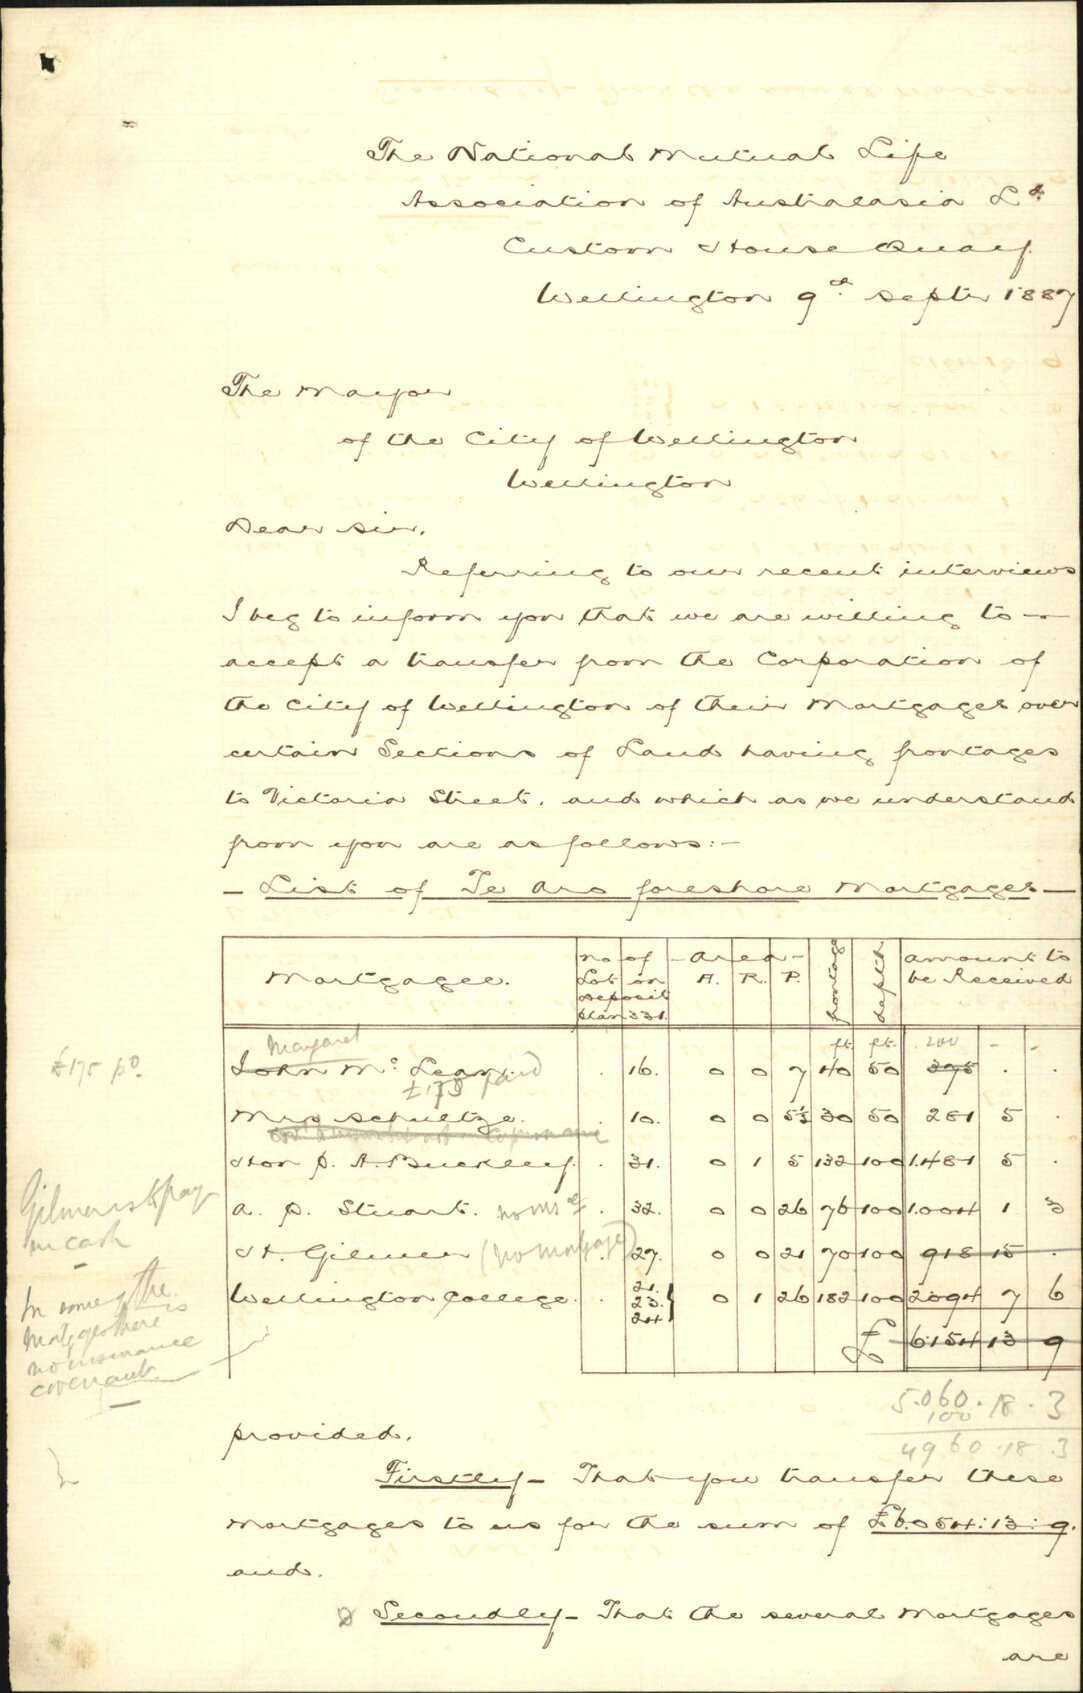 The National Mutual Life
Association of Australasia Ld.
Custom House Quay.
Wellington 9th Septr 1887
The Mayor
of the City of Wellington
Wellington
Dear Sir,
Referring to our recent interviews
I beg to inform you that we are willing to —
accept a transfer from the Corporation of
the City of Wellington of their Mortgages over
certain Sections of Land having frontages
to Victoria Street, and which as we understand
from you are as follows:-
- List of Te Aro foreshore Mortgages -
Mortgagee. no of Lot on Deposit plan 331. - Area - A. R. P. frontage depth amount to be Received
Margaret ft. ft. 200 - -
£175 pd. John Mc Lean. 16. 0 0 7 40 50 375 . .
£175 paid
Mrs Schultze. 10. 0 0 5½ 30 50 281 5 .
Hon P. A. Buckley. 31. 0 1 5 132 100 1.481 5 .
Gilmer is to pay in cash
A. P. Stuart. no ms of 32. 0 0 26 76 100 1.004 1 3
H. Gilmer (no mortgage) 27. 0 0 21 70 100 918 15 .
In some of the Mortgages there is no insurance covenant.
Wellington College. 21. 23. 24 0 1 26 182 100 2094 7 6
£ 6154 13 9
5.060. 18. 3
100
4960. 18. 3
provided.
Firstly - That you transfer these
Mortgages to us for the sum of £6.054:13:9.
and.
Secondly - That the several Mortgages
are